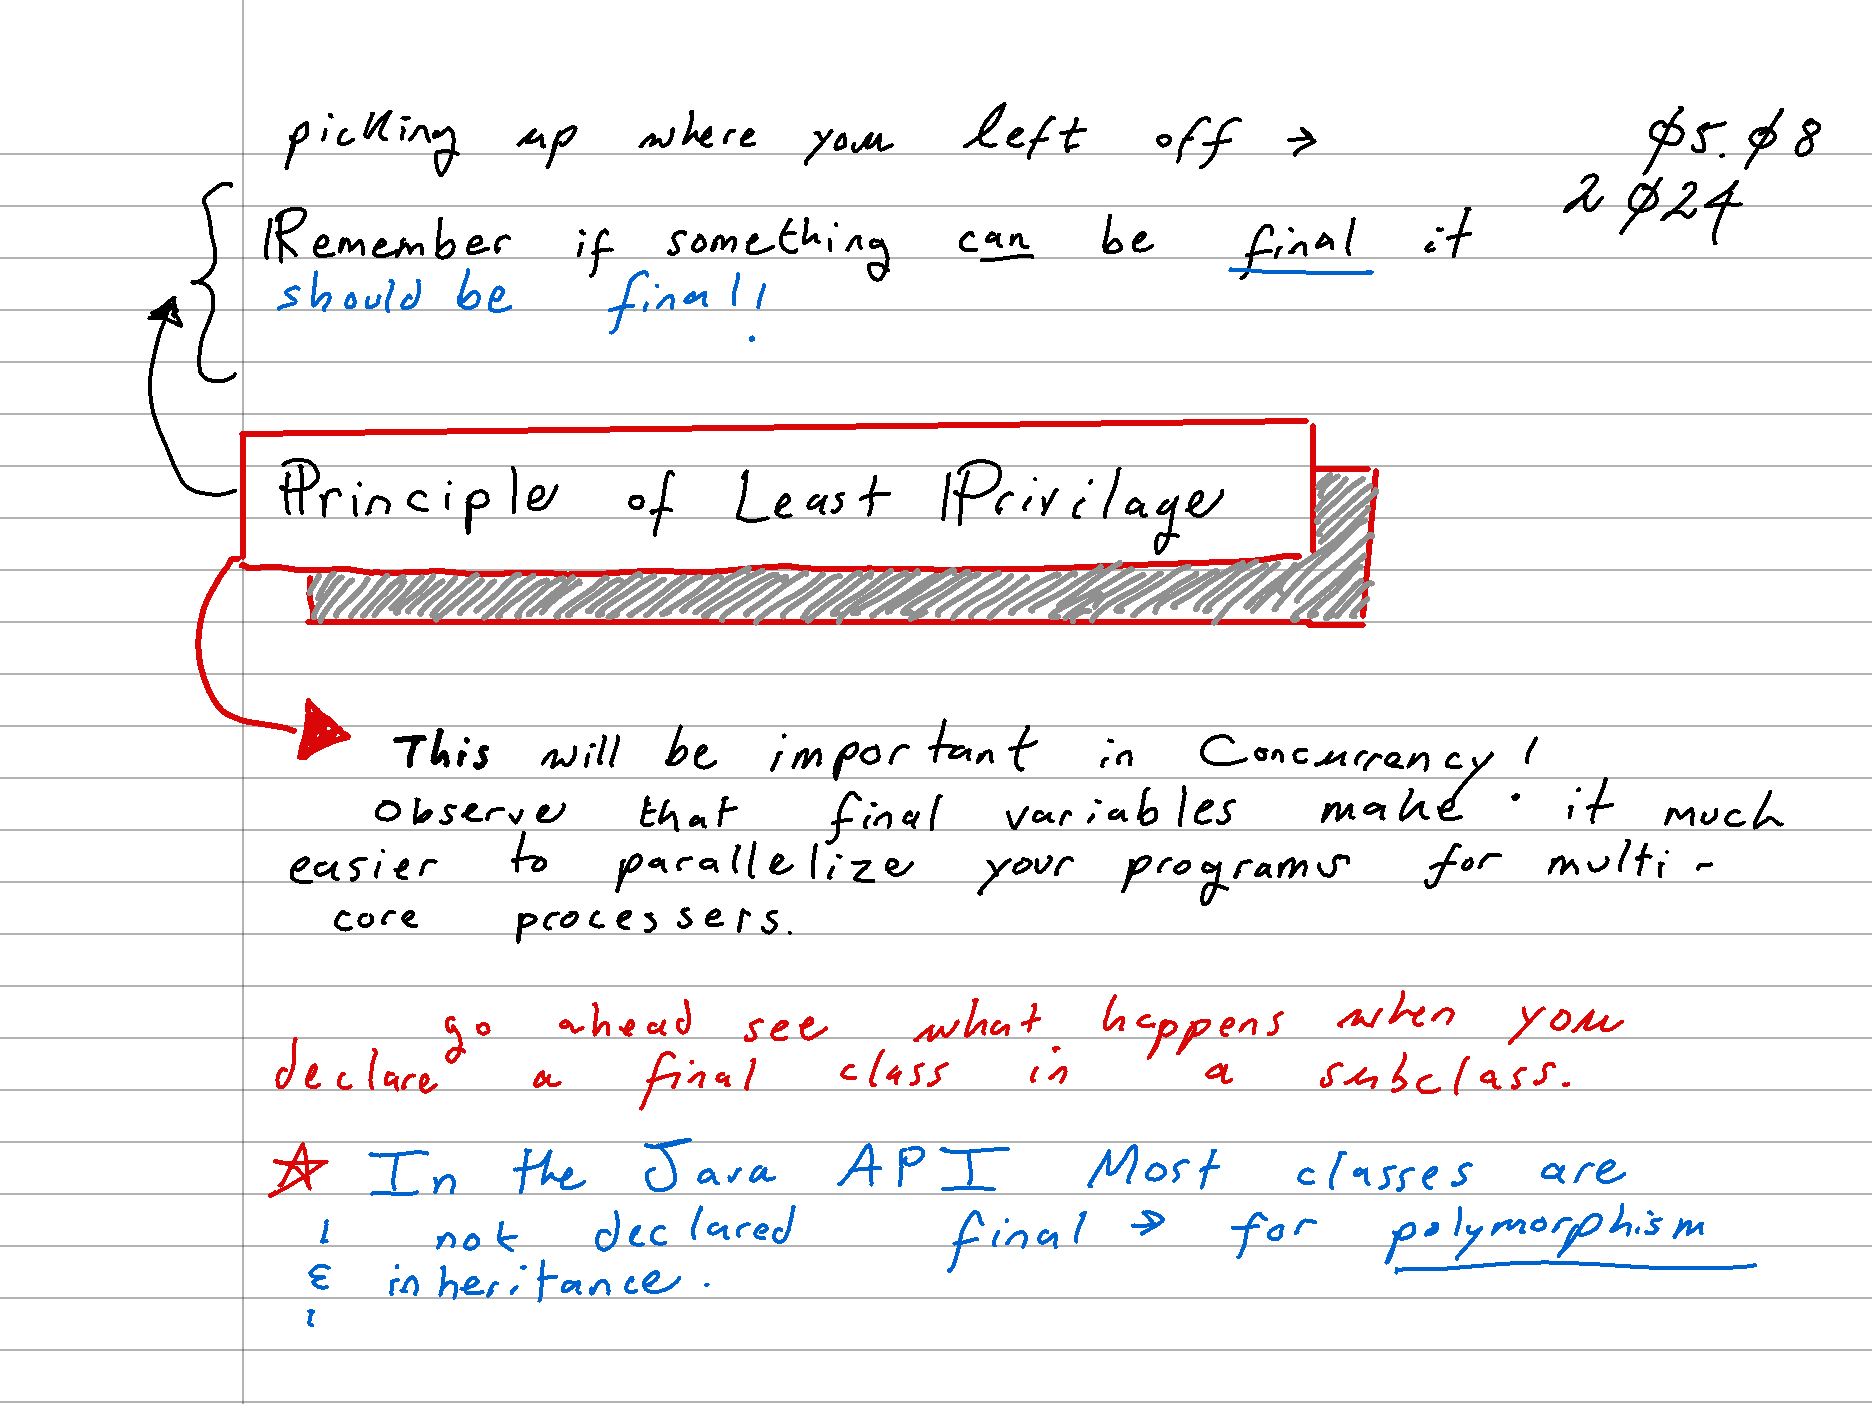 picking up where you left off → Ø5.Ø8
2Ø24
Remember if something can be final it
should be final!
Principle of Least Privilage
This will be important in Concurrency!
Observe that final variables make it much
easier to parallelize your programs for multi-
core processers.
go ahead see what happens when you
declare a final class in a subclass.
☆ In the Java API Most classes are
not declared final → for polymorphism
& inheritance.